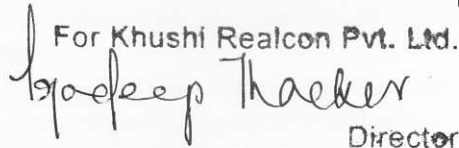 For Khushi Realcon Pvt. Ltd.
Pradeep Thacker
Director